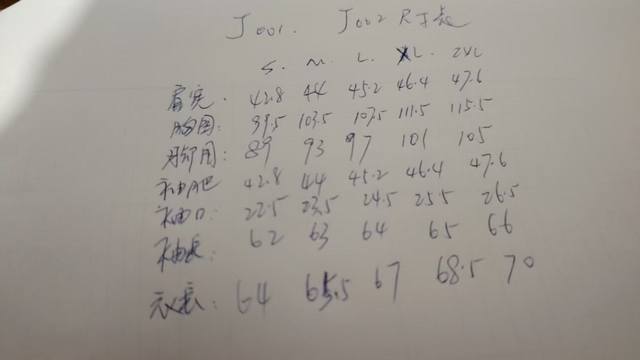 J001. J002 尺寸表
S. M. L. XL. 2XL
肩宽. 42.8 44 45.2 46.4 47.6
胸围: 99.5 103.5 107.5 111.5 115.5
腰围: 89 93 97 101 105
袖肥 42.8 44 45.2 46.4 47.6
袖口: 22.5 23.5 24.5 25.5 26.5
袖长: 62 63 64 65 66
衣长: 64 65.5 67 68.5 70